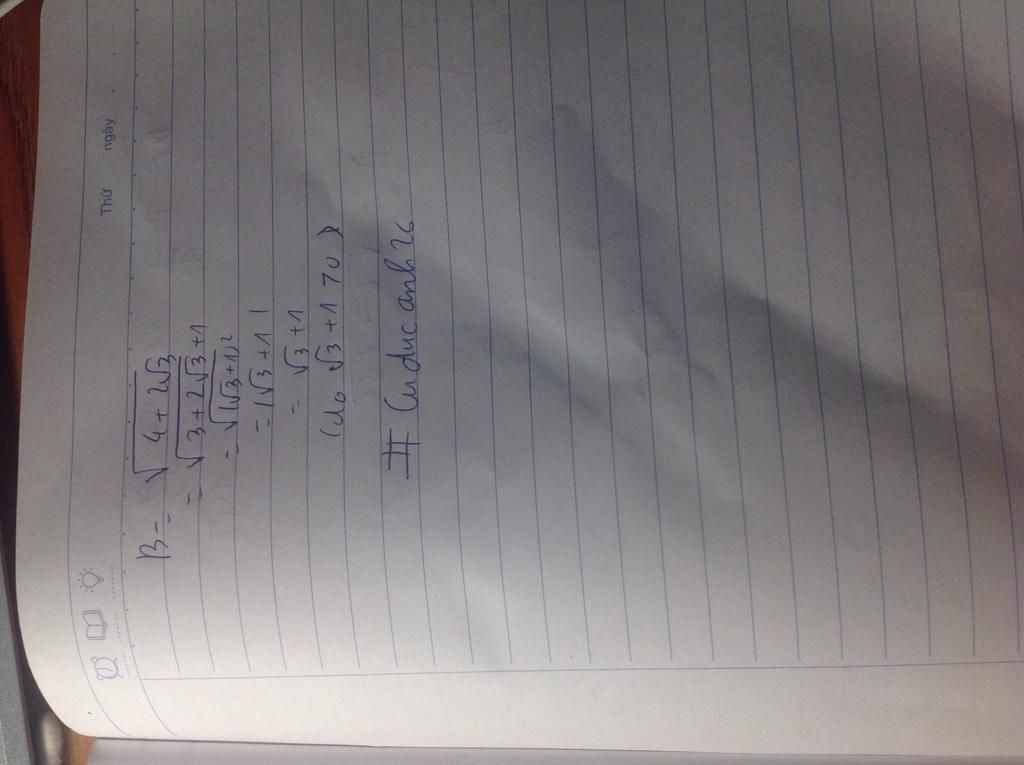 Thứ ngày
B = √(4 + 2√3)
= √(3 + 2√3 + 1)
= √((√3 + 1)²)
= |√3 + 1|
= √3 + 1
(do √3 + 1 > 0)
# Cuducanh26